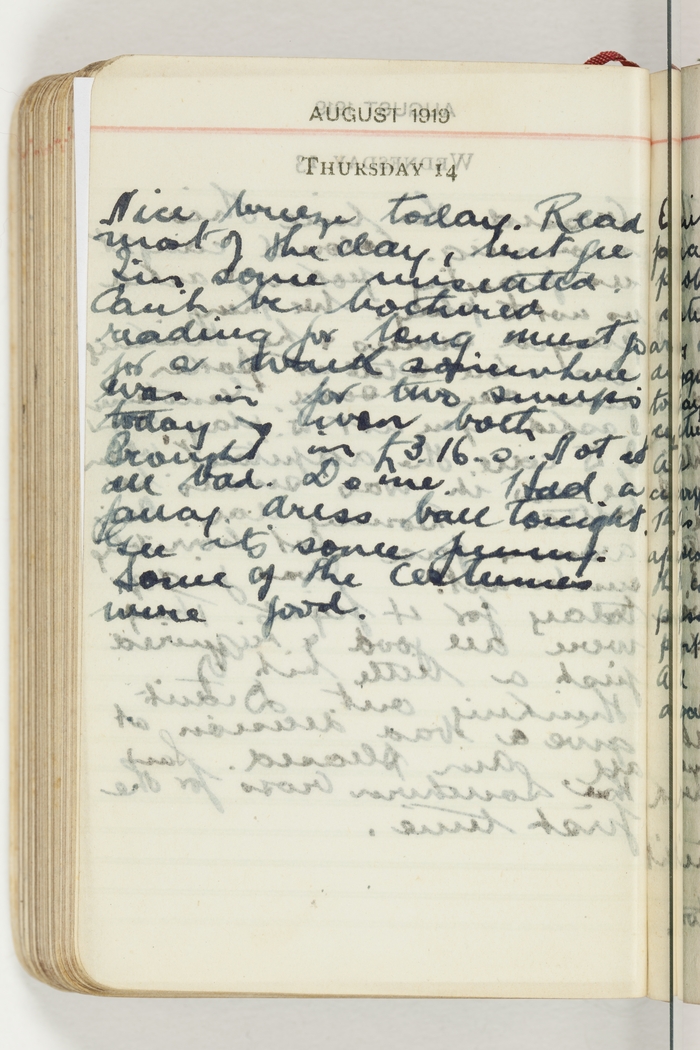 AUGUST 1919
THURSDAY 14
Nice breeze today. Read
most of the day, but gee
I'm some unseated.
Can't be bothered
reading for long must go
for a walk somewhere
was in for two sweeps
today & won both
Brought in £3.16.0. Not at
all bad. Do me. Had a
fancy dress ball tonight.
Gee its some funny.
Some of the costumes
were good.